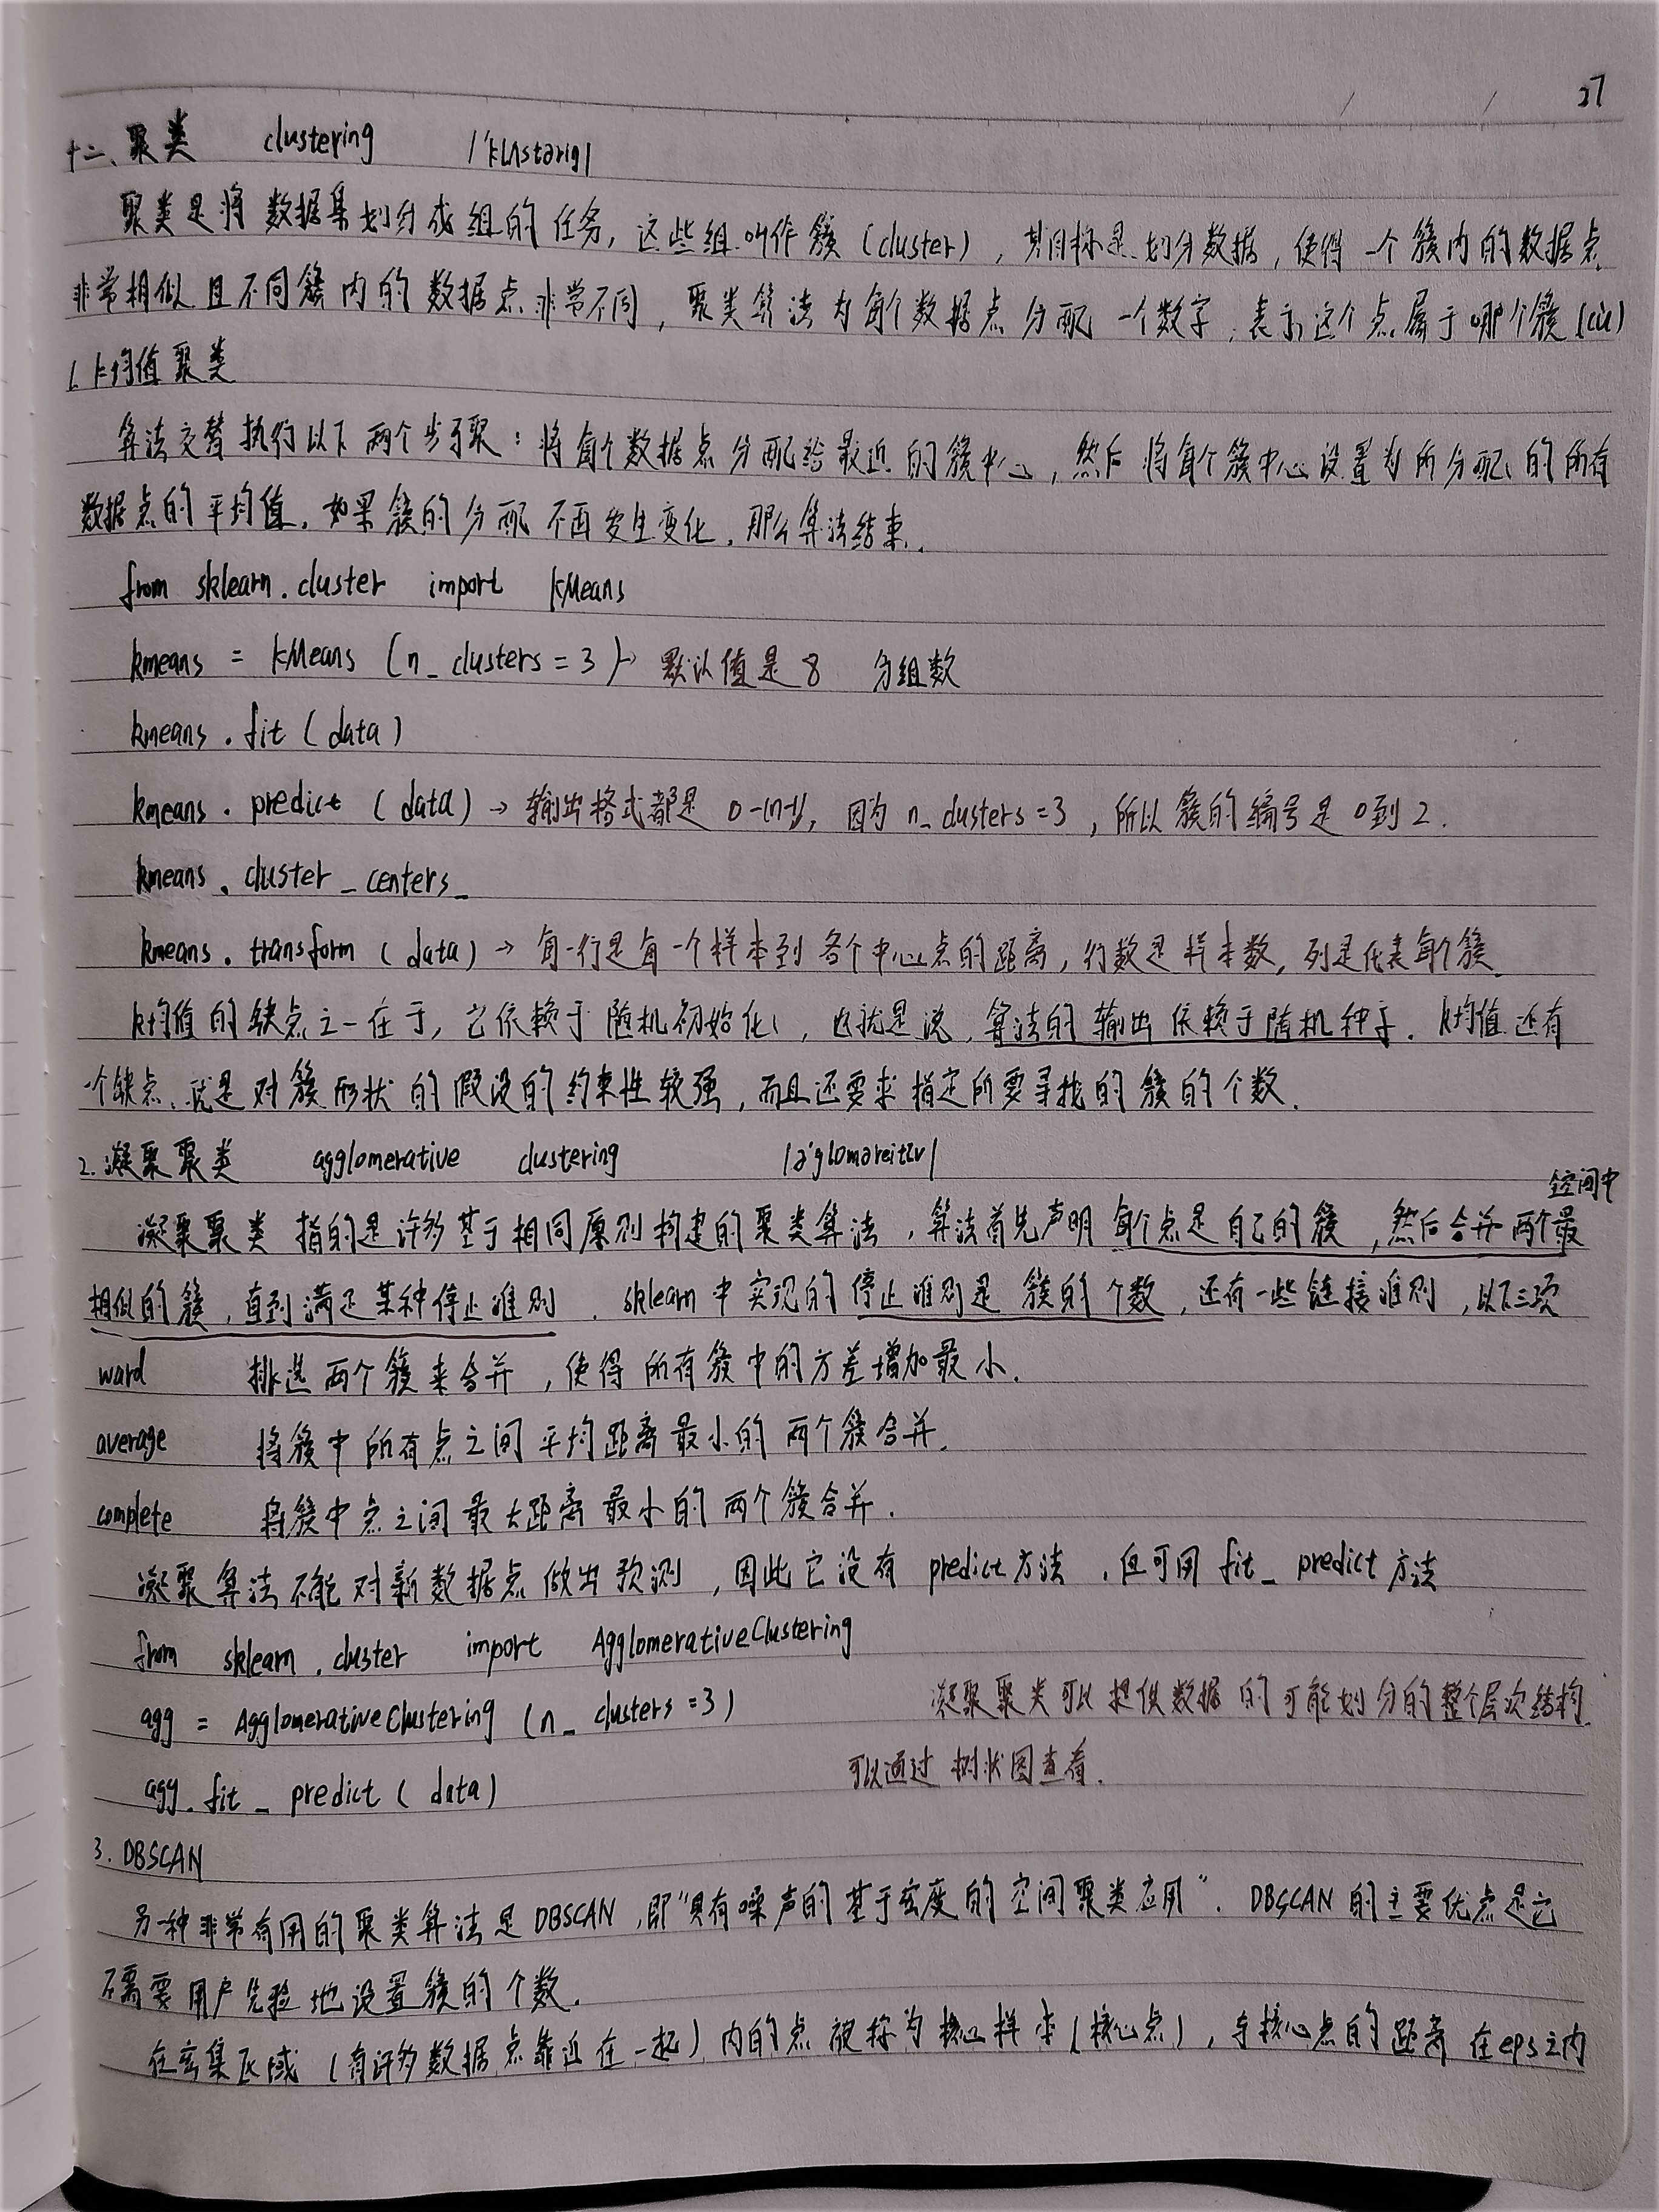 27
十二、聚类 clustering /'klʌstərɪŋ/
聚类是将数据集划分成组的任务，这些组叫作簇（cluster），其目标是划分数据，使得一个簇内的数据点
非常相似且不同簇内的数据点非常不同，聚类算法为每个数据点分配一个数字，表示这个点属于哪个簇（cù）
1. k均值聚类
算法交替执行以下两个步骤：将每个数据点分配给最近的簇中心，然后将每个簇中心设置为所分配的所有
数据点的平均值，如果簇的分配不再发生变化，那么算法结束。
from sklearn.cluster import KMeans
kmeans = KMeans (n_clusters = 3) → 默认值是8 分组数
kmeans.fit (data)
kmeans.predict (data) → 输出格式都是 0-(n-1)，因为 n_clusters = 3，所以簇的编号是0到2.
kmeans.cluster_centers_
kmeans.transform (data) → 每一行是每一个样本到各个中心点的距离，行数是样本数，列是代表每个簇.
k均值的缺点之一在于，它依赖于随机初始化，也就是说，算法的输出依赖于随机种子. k均值还有
一个缺点，就是对簇形状的假设的约束性较强，而且还要求指定所要寻找的簇的个数.
2. 凝聚聚类 agglomerative clustering /ə'glɒməreitɪv/
空间中
凝聚聚类指的是许多基于相同原则构建的聚类算法，算法首先声明每个点是自己的簇，然后合并两个最
相似的簇，直到满足某种停止准则. sklearn中实现的停止准则是簇的个数，还有一些链接准则，以下三项
ward 挑选两个簇来合并，使得所有簇中的方差增加最小.
average 将簇中所有点之间平均距离最小的两个簇合并.
complete 将簇中点之间最大距离最小的两个簇合并.
凝聚算法不能对新数据点做出预测，因此它没有predict方法，但可用 fit_predict方法
from sklearn.cluster import AgglomerativeClustering
agg = AgglomerativeClustering (n_clusters = 3) 凝聚聚类可以提供数据的可能划分的整个层次结构.
agg.fit_predict (data) 可以通过树状图查看.
3. DBSCAN
另一种非常有用的聚类算法是DBSCAN，即“具有噪声的基于密度的空间聚类应用”. DBSCAN的主要优点是它
不需要用户先验地设置簇的个数.
在密集区域（有许多数据点靠近在一起）内的点被称为核心样本（核心点），与核心点的距离在eps之内